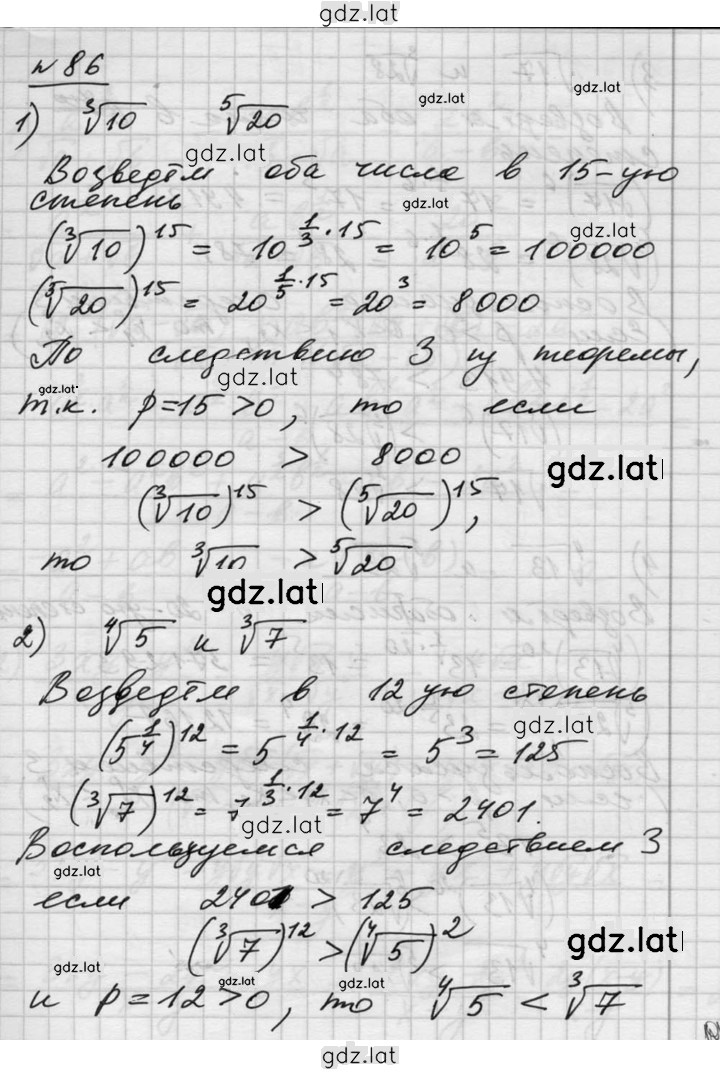 gdz.lat
№ 86
gdz.lat
1) ∛10 ⁵√20
gdz.lat
gdz.lat
Возведём оба числа в 15-ую
степень
gdz.lat
(∛10)¹⁵ = 10^(1/3 · 15) = 10⁵ = 100000
(∛20)¹⁵ = 20^(1/5 · 15) = 20³ = 8000
По следствию 3 из теоремы,
gdz.lat
gdz.lat
т.к. p=15 >0, то если
100000 > 8000
gdz.lat
(∛10)¹⁵ > (⁵√20)¹⁵,
то ∛10 > ⁵√20
gdz.lat
2) ⁴√5 и ∛7
Возведём в 12 ую степень
gdz.lat
(5^(1/4))¹² = 5^(1/4 · 12) = 5³ = 125
(∛7)¹² = 7^(1/3 · 12) = 7⁴ = 2401.
gdz.lat
Воспользуемся следствием 3
gdz.lat
если 2401 > 125
(∛7)¹² > (⁴√5)²
gdz.lat
gdz.lat
gdz.lat
gdz.lat
и p = 12 >0, то ⁴√5 < ∛7
gdz.lat